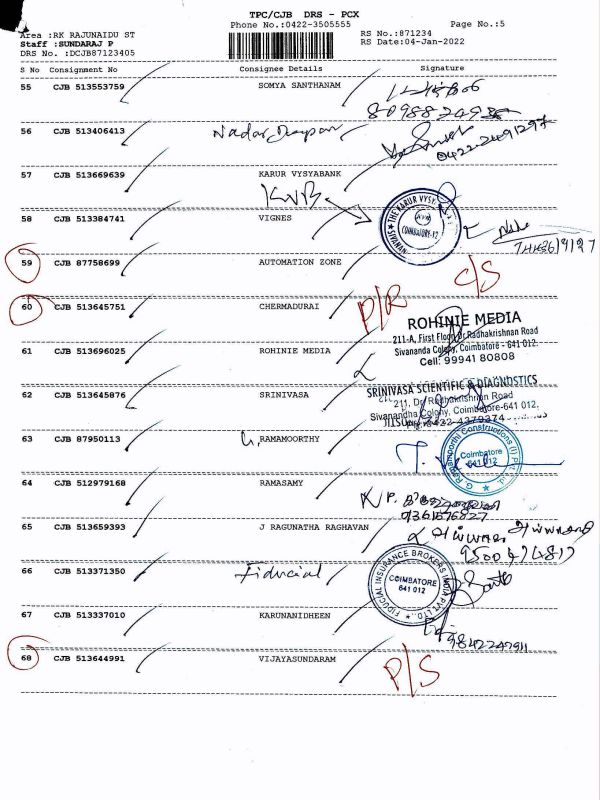 TPC/CJB DRS - PCX
Phone No.:0422-3505555
Page No.:5
Area :RK RAJUNAIDU ST
RS No.:871234
Staff :SUNDARAJ P
RS Date:04-Jan-2022
DRS No. :DCJB87123405
S No Consignment No Consignee Details Signature
55 CJB 513553759 SOMYA SANTHANAM
56 CJB 513406413 Nadar
0422-2491297
57 CJB 513669639 KARUR VYSYABANK
KVB
THE KARUR VYSY
COIMBATORE-12
58 CJB 513384741 VIGNES
59 CJB 87758699 AUTOMATION ZONE C/S
60 CJB 513645751 CHERMADURAI P/R
ROHINIE MEDIA
211-A, First Floor, Dr.Radhakrishnan Road
Sivananda Colony, Coimbatore - 641 012.
Cell: 99941 80808
61 CJB 513696025 ROHINIE MEDIA
62 CJB 513645876 SRINIVASA
SRINIVASA SCIENTIFIC & DIAGNOSTICS
211, Dr. Radhakrishnan Road
Sivanandha Colony, Coimbatore-641 012.
63 CJB 87950113 RAMAMOORTHY
Constructions (I) Pvt. Ltd.
Coimbatore
641 012
64 CJB 512979168 RAMASAMY
65 CJB 513659393 J RAGUNATHA RAGHAVAN
66 CJB 513371350 Fiducial
FIDUCIAL INSURANCE BROKERS INDIA PVT LTD.
COIMBATORE
641 012
67 CJB 513337010 KARUNANIDHEEN
9842247911
68 CJB 513644991 VIJAYASUNDARAM P/S